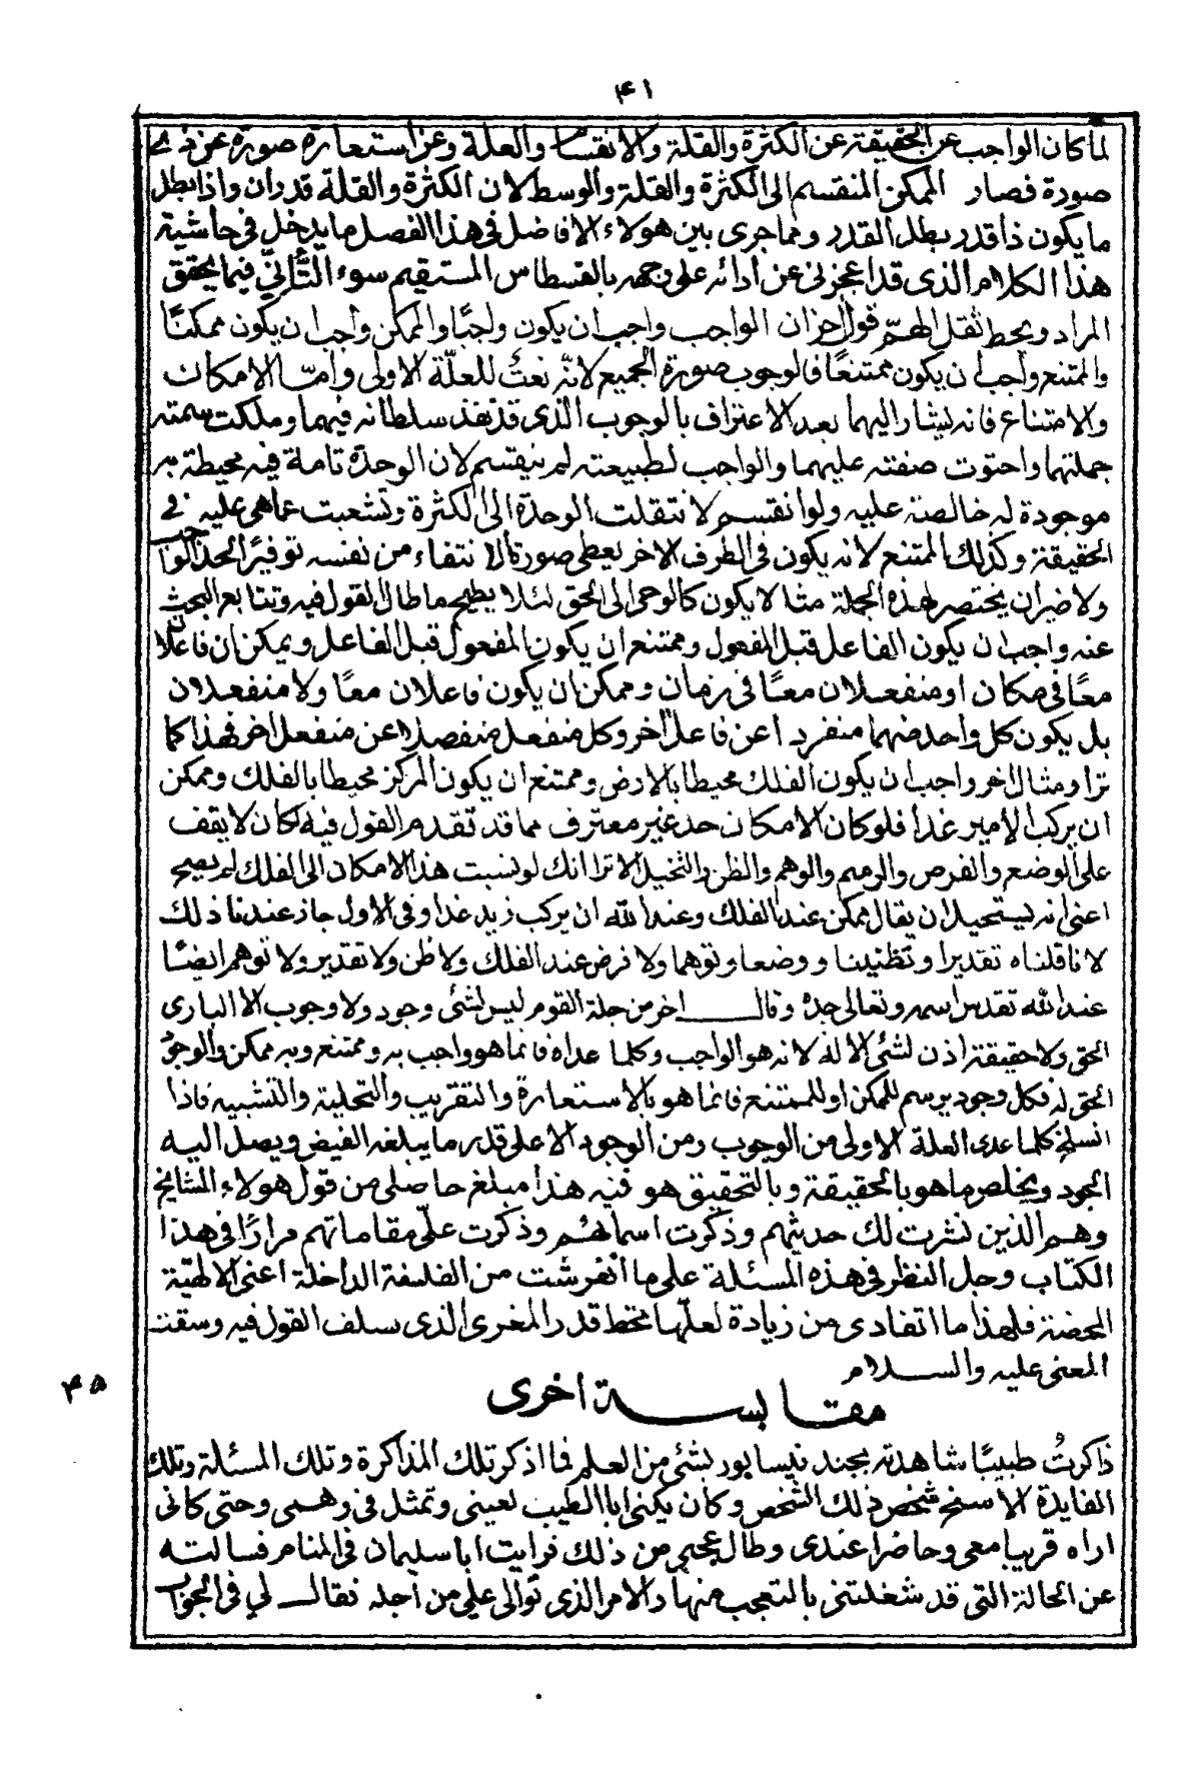 ۴۱
لما كان الواجب عن الحقيقة عن الكثرة والقلة والانقسام والعلة وعن استعارة صورة عن ذى
صورة فصار الممكن المنقسم الى الكثرة والقلة والوسط لان الكثرة والقلة قدران واذا بطل
ما يكون ذا قدر بطل القدر ومما جرى بين هولاء الافاضل فى هذا الفصل ما يدخل فى حاشية
هذا الكلام الذى قد اعجزنى عن ادائه على وجهه بالقسطاس المستقيم سوء التأتى فيما يحقق
المراد ويحط ثقل الهم قول اخر ان الواجب واجب ان يكون واجبًا والممكن واجب ان يكون ممكنًا
والمتنع واجب ان يكون ممتنعًا فالوجوب صورة الجميع لانّه نعتٌ للعلّة الاولى وامّا الامكان
والامتناع فانه يشار اليهما بعد الاعتراف بالوجوب الذى قد نفذ سلطانه فيهما وملكت سمته
جملتهما واحتوت صفته عليهما والواجب لطبيعته لم ينقسم لان الوحدة تامة فيه محيطة به
موجودة له خالصة عليه ولو انقسم لانتقلت الوحدة الى الكثرة وتشعبت عما هى عليه فى
الحقيقة وكذلك الممتنع لانه يكون فى الطرف الاخر يعطى صورة الانتفاء من نفسه توفيرًا لحد الواجب
ولا ضير ان يختصر لهذه الجملة مثالا يكون كالوحى الى الحق لئلا يطيح ما طال القول فيه وتتابع البحث
عنه واجب ان يكون الفاعل قبل المفعول وممتنع ان يكون المفعول قبل الفاعل ويمكن ان فاعلان
معًا فى مكان او منفعلان معًا فى زمان وممكن ان يكون فاعلان معًا ولا منفعلان
بل يكون كل واحد منهما منفردا عن فاعل اخر وكل منفعل منفصلا عن منفعل اخر فهذا كما
ترا ومثال اخر واجب ان يكون الفلك محيطا بالارض وممتنع ان يكون المركز محيطا بالفلك وممكن
ان يركب الامير غدا فلو كان الامكان حد غير معترف مما قد تقدم القول فيه لكان لا يقف
على الوضع والفرض والرسم والوهم والظن والتخيل الا ترا انك لو نسبت هذا الامكان الى الفلك لم يصح
اعنى انه يستحيل ان يقال ممكن عند الفلك وعند الله ان يركب زيد غدا وفى الاول جاز عندنا ذلك
لانا قلناه تقديرا وتظنينا ووضعا وتوهما ولا فرض عند الفلك ولا ظن ولا تقدير ولا توهم ايضًا
عند الله تقدس اسمه وتعالى جده وقال اخر من جلة القوم ليس لشئ وجود ولا وجوب الا البارى
الحق ولا حقيقة اذن لشئ الا له لانه هو الواجب وكلما عداه فانما هو واجب به وممتنع وبه ممكن والوجود
الحق له فكل وجود برسم للممكن او للممتنع فانما هو بالاستعارة والتقريب والتحلية والتشبيه فاذا
انسلخ كلما عدى العلة الاولى من الوجوب ومن الوجود الا على قدر ما يبلغه الفيض ويصل اليه
الجود ويخلص ما هو بالحقيقة وبالتحقيق هو فيه هذا مبلغ حاصلى من قول هولاء المشايخ
وهم الذين نشرت لك حديثهم وذكرت اسمائهم وذكرت علّى مقاماتهم مرارًا فى هذا
الكتاب وجل النظر فى هذه المسئلة على ما انفرشت من الفلسفة الداخلة اعنى الالهيّة
المحضة فلهذا ما اتفادى من زيادة لعلّها تحط قدر المغرى الذى سلف القول فيه وسقت
المعنى عليه والسلام
۴۵
مقابسة اخرى
ذاكرتُ طبيبًا شاهدته بجند نيسابور بشئ من العلم فما اذكر تلك المذاكرة وتلك المسئلة وتلك
الفايدة الا سنح شخص ذلك الشخص وكان يكنى ابا الطيب لعينى وتمثل فى وهمى وحتى كانى
اراه قريبا معى وحاضرا عندى وطال عجبى من ذلك فرايت ابا سليمان فى المنام فسالته
عن الحالة التى قد شغلتنى بالتعجب منها والامر الذى توالى على من اجله فقال لي فى الجواب